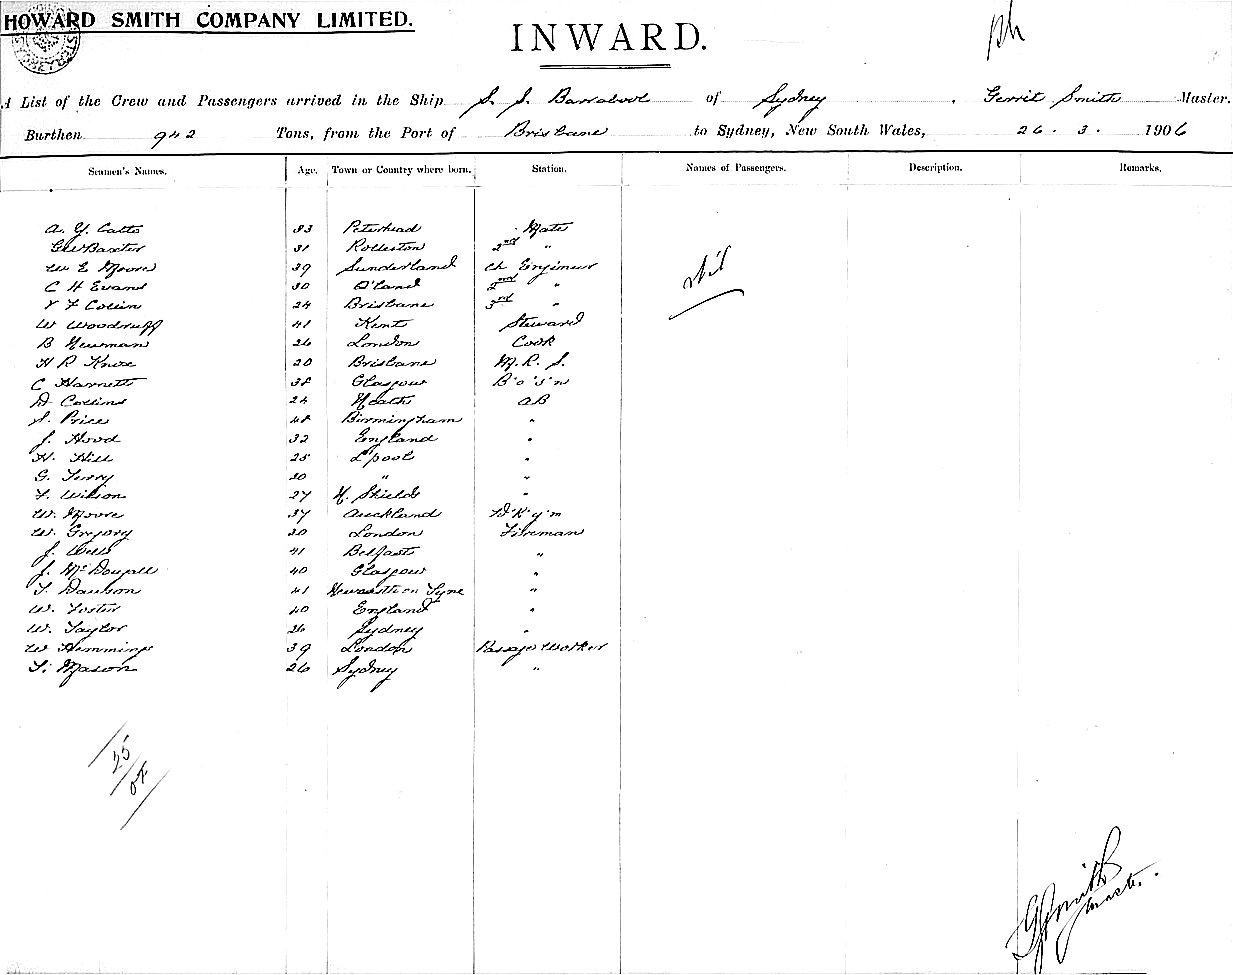 HOWARD SMITH COMPANY LIMITED.
INWARD.
A List of the Crew and Passengers arrived in the Ship S. S. Barrabool of Sydney, Gerrit Smith Master.
Burthen 942 Tons, from the Port of Brisbane to Sydney, New South Wales, 26 . 3 . 1906
Seamen's Names. Age. Town or Country where born. Station. Names of Passengers. Description. Remarks.
A. Y. Catto 33 Peterhead Mate
Geo Baxter 31 Rolleston 2nd "
W E Moore 39 Sunderland Ch Engineer
C H Evans 30 Q'land 2nd "
Nil
F Collin 24 Brisbane 3rd "
W Woodruff 41 Kent Steward
B Newman 26 London Cook
H R Knox 20 Brisbane M. R. S.
C Harnett 38 Glasgow B'o's'n
D Collins 24 Neath AB
S. Price 48 Birmingham "
J. Hood 32 England "
H. Hill 25 L'pool "
G. Terry 30 " "
F. Wilson 27 N. Shields "
W. Moore 37 Auckland D'k'y'm
W. Gregory 30 London Fireman
J. Wells 41 Belfast "
J. McDougall 40 Glasgow "
T. Dawson 41 Newcastle on Tyne "
W. Foster 40 England "
W. Taylor 26 Sydney "
W Hemmings 39 London Passage Worker
T. Mason 26 Sydney "
25
G Smith
Master.